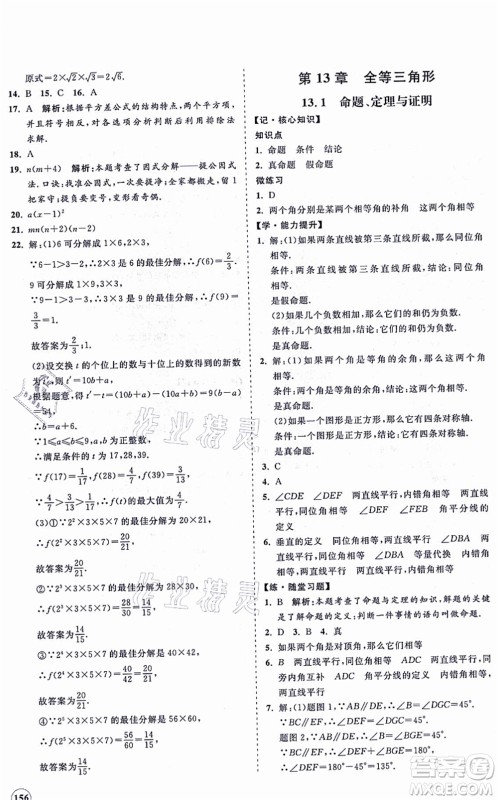 原式=2×√2×√3=2√6.
14. B  15. C  16. A
17. A  解析:根据平方差公式的结构特点,两个平方项,并且符号相反,对各选项分析判断后利用排除法求解.
18. A
19. n(m+4)  解析:本题考查了因式分解——提公因式法,口诀:找准公因式,一次要提净;全家都搬走,留1把家守;提负要变号,变形看奇偶.
20. a(x-1)²
21. mn(n+2)(n-2)
22. 解:(1)6可分解成1×6,2×3,
∵6-1>3-2,∴2×3是6的最佳分解,∴f(6)=2/3.
9可分解成1×9,3×3,
∵9-1>3-3,∴3×3是9的最佳分解,∴f(9)=3/3=1.
故答案为2/3;1.
(2)设交换t的个位上的数与十位上的数得到的新数为t′,则t′=10b+a,
根据题意,得t′-t=(10b+a)-(10a+b)=9(b-a)=54,
∴b=a+6.
∵1≤a≤b≤9,a,b为正整数,
∴满足条件的t为17,28,39.
∵f(17)=1/17,f(28)=4/7,f(39)=3/13,
∵4/7>3/13>1/17,∴f(t)的最大值为4/7.
(3)①∵2²×3×5×7的最佳分解为20×21,
∴f(2²×3×5×7)=20/21.
故答案为20/21.
②∵2³×3×5×7的最佳分解是28×30,
∴f(2³×3×5×7)=28/30=14/15.
故答案为14/15.
③∵2⁴×3×5×7的最佳分解是40×42,
∴f(2⁴×3×5×7)=40/42=20/21.
故答案为20/21.
④∵2⁵×3×5×7的最佳分解是56×60,
∴f(2⁵×3×5×7)=56/60=14/15.
故答案为14/15.
156
第13章 全等三角形
13.1 命题、定理与证明
【记·核心知识】
知识点
1. 命题 条件 结论
2. 真命题 假命题
微练习
1. D
2. 两个角分别是某两个相等角的补角 这两个角相等
【学·能力提升】
1. 解:(1)如果两条直线被第三条直线所截,那么同位角相等.
条件:两条直线被第三条直线所截,结论:同位角相等.
是假命题.
(2)如果几个负数相加,那么它们的和仍为负数.
条件:几个负数相加,结论:它们的和仍为负数.
是真命题.
2. 解:(1)如果两个角是等角的余角,那么这两个角相等.
条件:两个角是等角的余角,结论:这两个角相等.
是真命题.
(2)如果一个图形是正方形,那么它的四条边相等.
条件:一个图形是正方形,结论:它的四条边相等.
是真命题.
3. C
4. A
5. ∠CDE ∠DEF 两直线平行,内错角相等 两直线平行,内错角相等 ∠DBA 等量代换
6. 垂直的定义 同位角相等,两直线平行 ∠DBA 两直线平行,内错角相等 ∠DBA 角平分线的定义
【练·随堂习题】
1. B  解析:本题考查了命题与定理的知识,解题的关键是了解命题的定义,判断一件事情的语句叫做命题.
2. D  3. D  4. 真
5. 如果两个角互为对顶角,那么这两个角相等
6. B 两直线平行,同位角相等 ADC 两直线平行,同旁内角互补 ADC 两直线平行,内错角相等 B D
7. 解:(1)题图1,∵AB∥DE,∴∠B=∠DGC=45°.
∵BC∥EF,∴∠DEF=∠DGC=45°.
题图2,∵AB∥DE,∴∠B=∠BGE=45°.
作业精灵
作业精灵